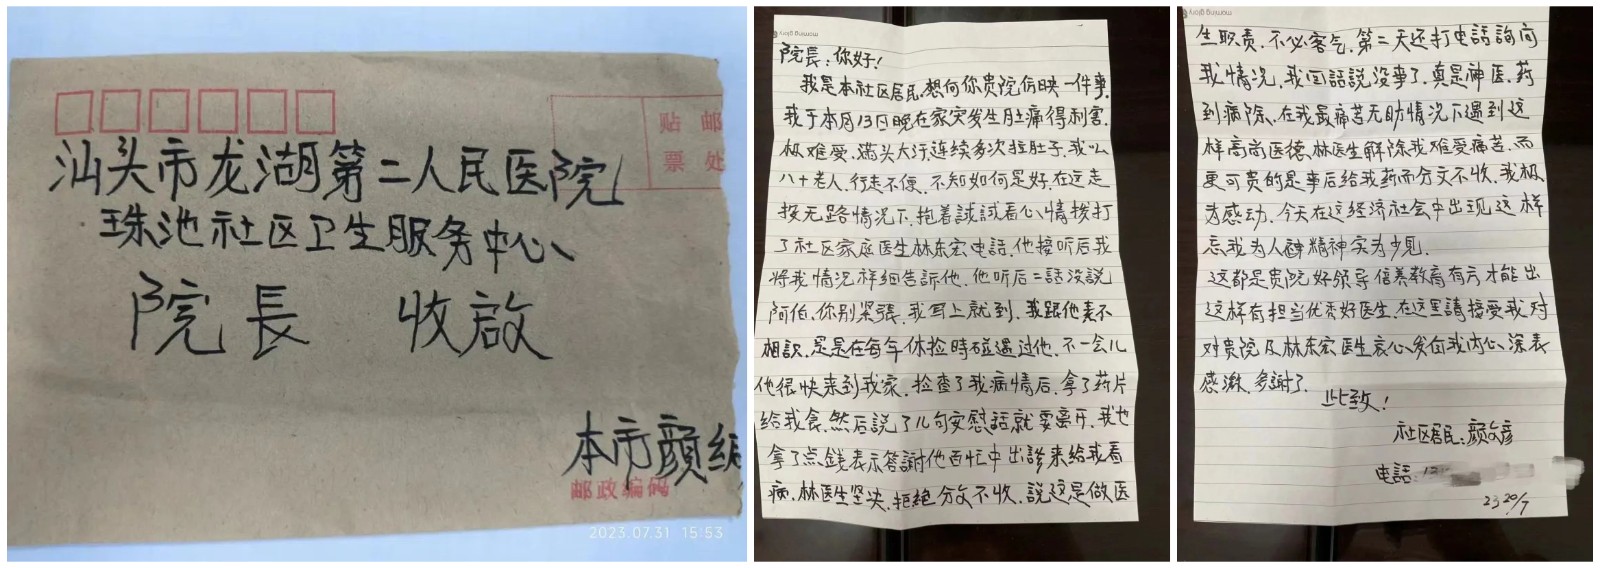 贴 邮
票 处
汕头市龙湖第二人民医院
珠池社区卫生服务中心
院長 收啟
本市顏
邮政编码
2023.07.31 15:53
morning glory
院長：你好！
我是本社区居民，想向你贵院仿映一件事，
我于本月13日晚在家突发生肚痛得利害，
极难受，满头大汗，连续多次拉肚子，我
八十老人，行走不便，不知如何是好，在这走
投无路情况下，抱着試試看心情拨打
了社区家庭医生林东宏电話，他接听后我
将我情况样细告訴他，他听后二話没説
阿伯，你别紧張，我马上就到，我跟他素不
相識，是在每年体捡時碰遇过他，不一会儿
他很快来到我家，捡查了我病情后，拿了药片
给我食，然后説了几句安慰話就要离开，我也
拿了点錢表示答謝他百忙中出診来给我看
病，林医生坚决拒絕分文不收，説这是做医
morning glory
生职责，不必客气，第二天还打电話詢问
我情况，我回話説没事了，真是神医，药
到病除，在我最痛苦无助情况下遇到这
样高尚医德，林医生解除我难受痛苦，而
更可贵的是事后给我药而分文不收，我极
为感动，今天在这经济社会中出现这样
忘我为人精神实为少見，
这都是贵院好领导培养教育有方才能出
这样有担当优秀好医生，在这里請接受我对
对贵院及林东宏医生衷心发自我内心深表
感激，多謝了，
此致！
社区居民：顏文彦
电話：
23 20/7